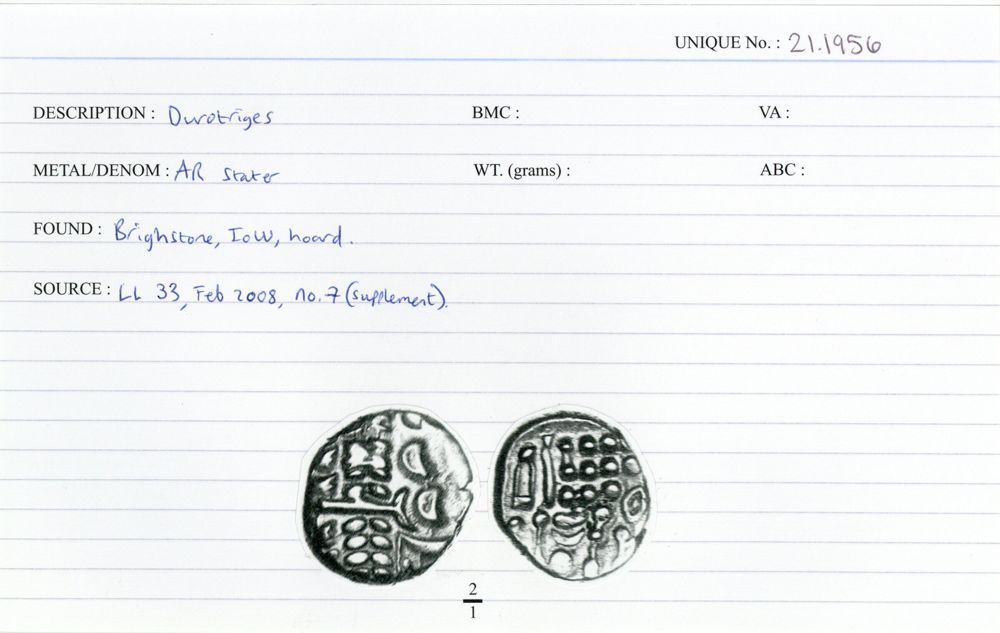 UNIQUE No. : 21.1956
DESCRIPTION : Durotriges BMC : VA :
METAL/DENOM : AR stater WT. (grams) : ABC :
FOUND : Brighstone, IoW, hoard.
SOURCE : LL 33, Feb 2008, no. 7 (supplement).
2
1